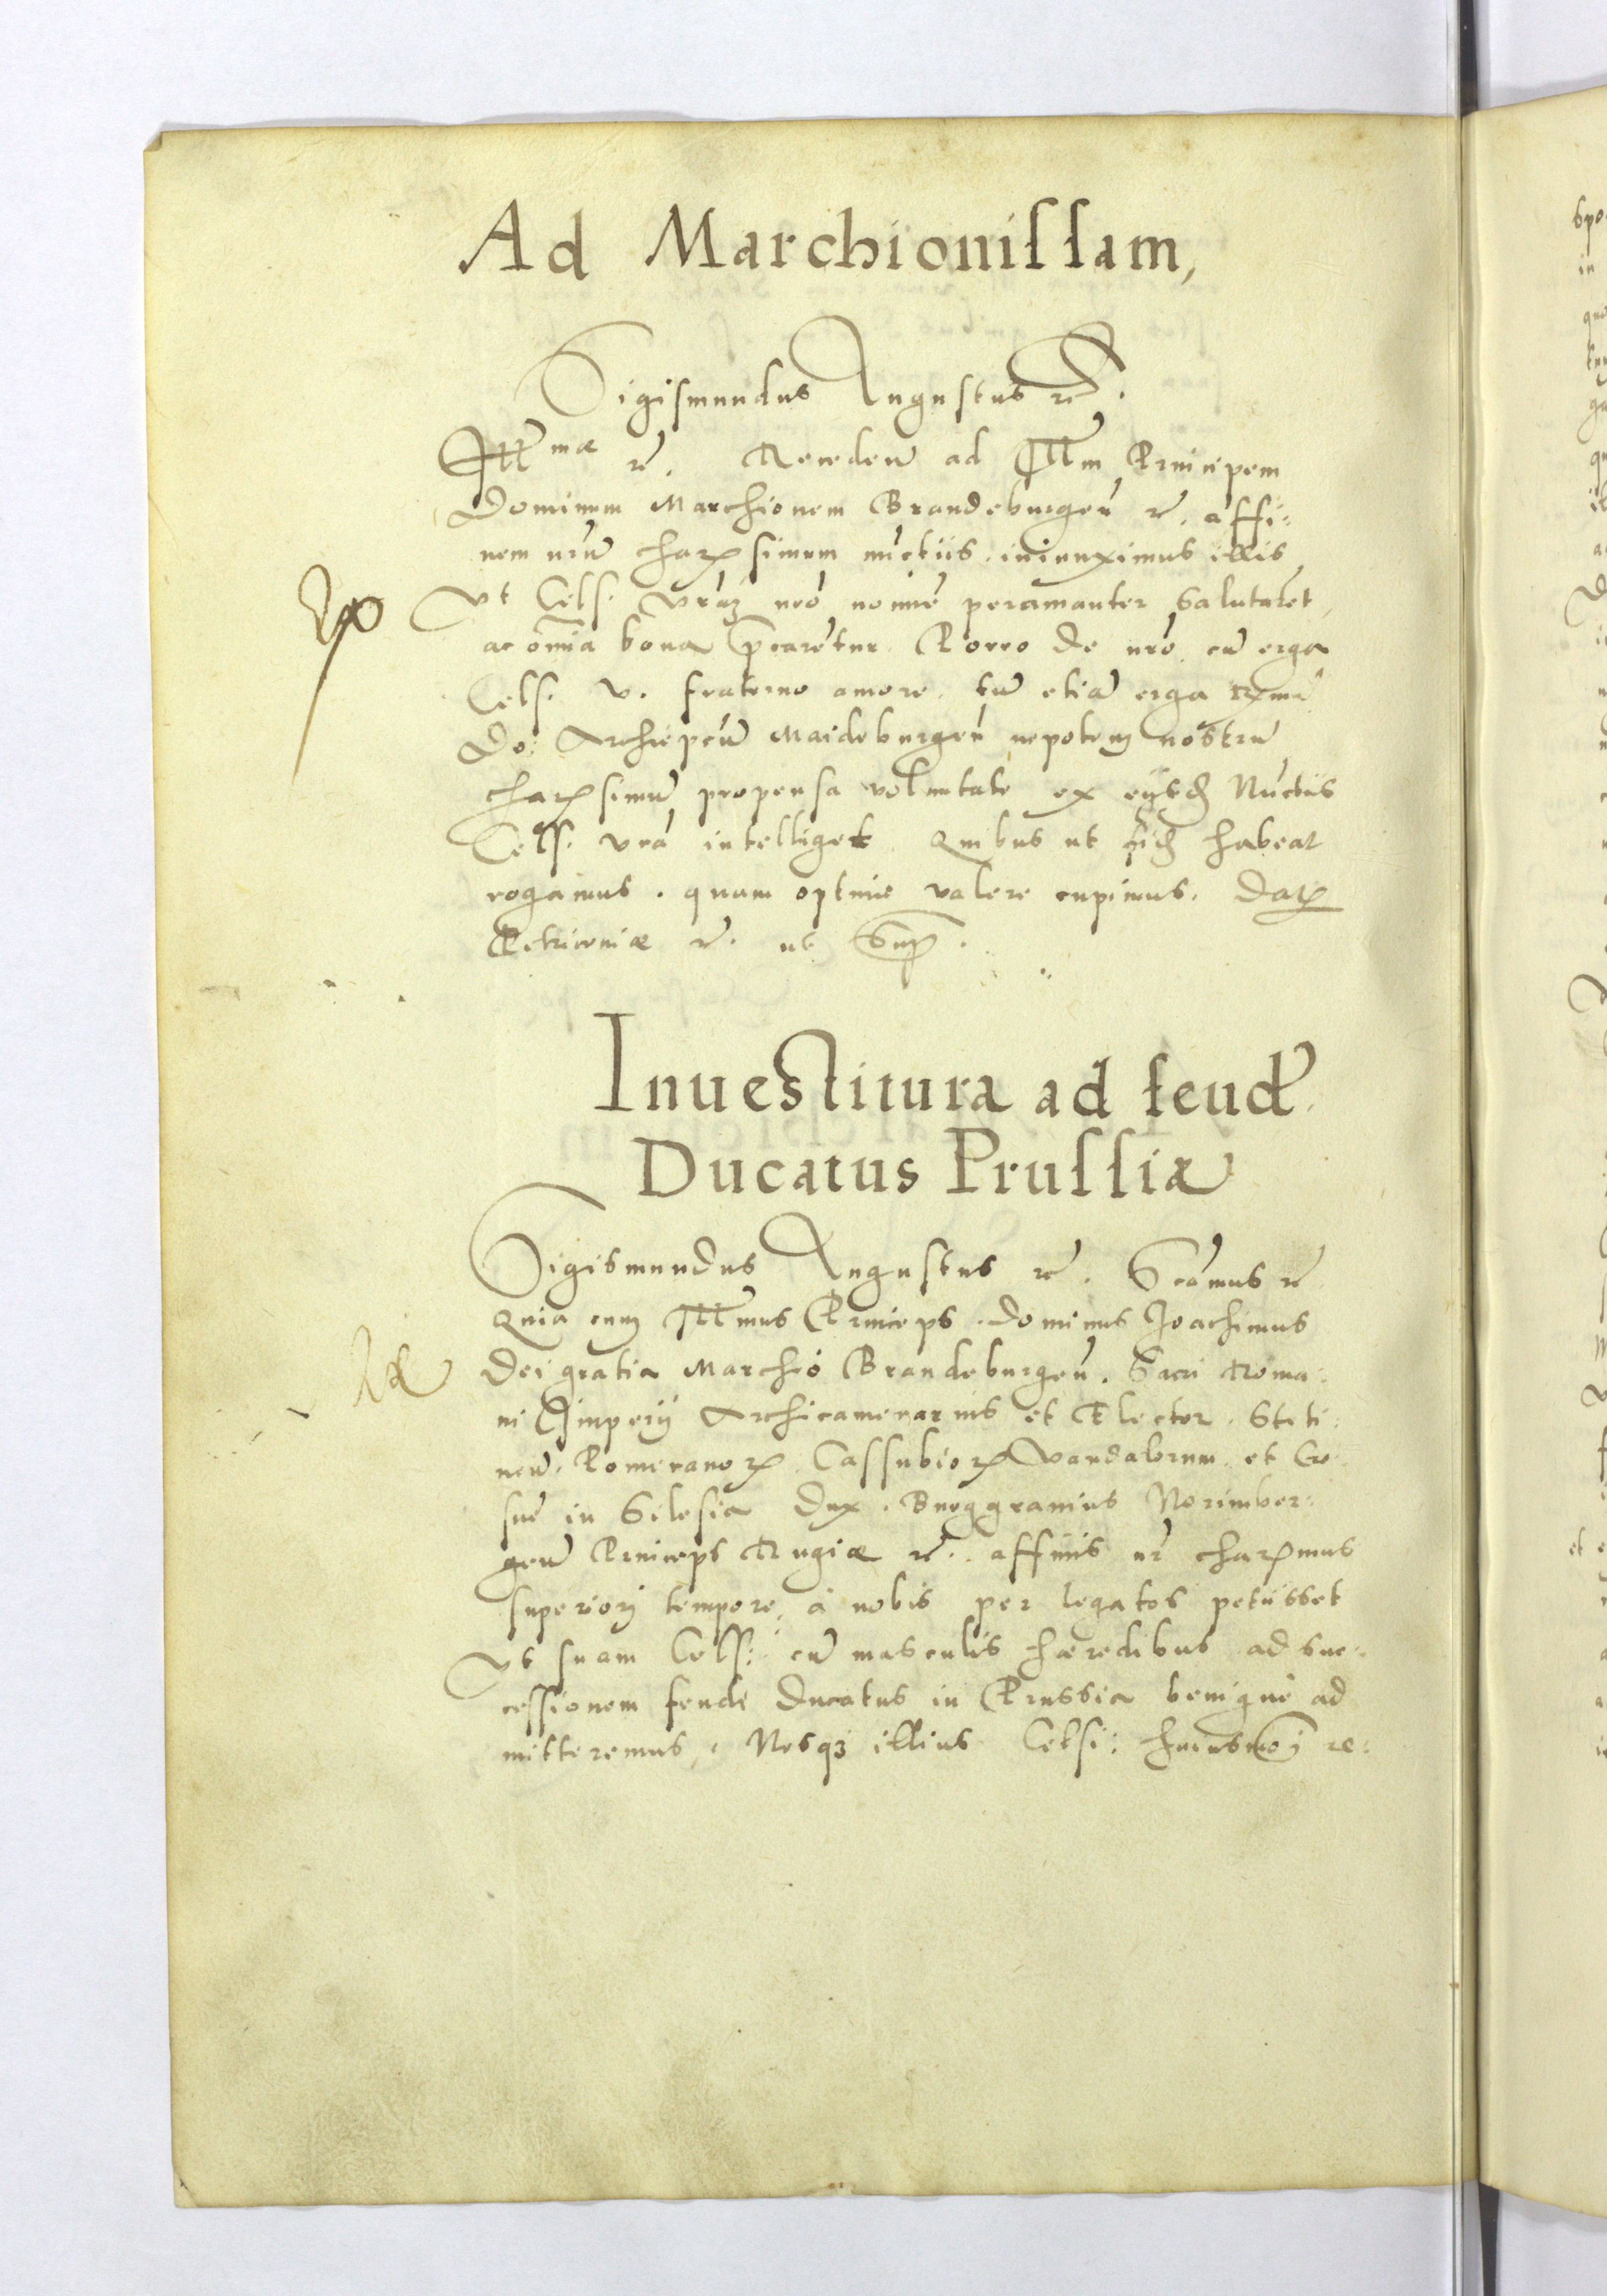 Ad Marchionissam,
Sigismundus Augustus rc̃.
Illmae rc̃. Recedeñ ad Illm Principem
Dominum Marchionem Brandeburgeñ rc̃. affi:
nem nrũ chariss simum nũctiis iniunximus illis
Vt Cels. vrãm nrõ noĩne peramanter salutarẽt,
ac oĩnia bona p̃carẽtur. Porro de nrõ cũ erga
Cels. v. fraterno amore, tũ etiã erga Rmũ
Do: Archiepcũ Maideburgeñ nepotem nostrũ
charissimũ propensa voluntate ex eijsdẽ Nũctiis
Cels. vrã intelliget Quibus ut fidẽ habeat
rogamus. quam optime valere cupimus. Dat
Petricouiæ rc̃. ut sup.
Inuestitura ad feud.
Ducatus Prussiæ
Sigismundus Augustus rc̃. Scãmus rc̃
Quia cum Illmus Princeps Dominus Joachimus
Dei gratia Marchio Brandeburgeñ. Sacri Roma:
ni Imperij Archicamerarius et Elector. Steti:
neñ. Pomeranor Cassubior Vandalorum et Cro
sñe in Silesia Dux. Burggrauius Norimber:
geñ Princeps Rugiæ rc̃. affinis nr̃ charmus
superiori tempore, à nobis per legatos petiisset
Vt suam Cels: cũ masculis hæredibus ad suc:
cessionem feudi Ducatus in Prussia benignè ad
mitteremus. Nosq3 illius Celsi: huiusmoi re: